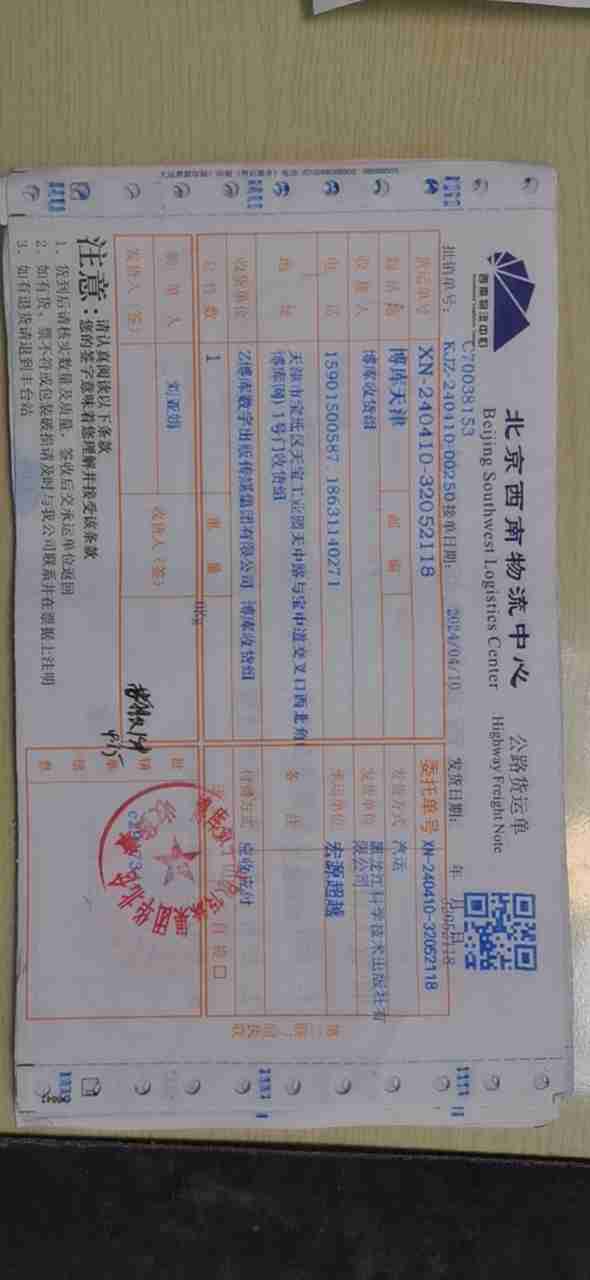 西南物流中心
北京西南物流中心
Beijing Southwest Logistics Center
公路货运单
Highway Freight Note
C70038153
批销单号: KJZ-240410-00250 接单日期: 2024/04/10 发货日期: 年 月 日
32052118
货运单号 XN-240410-32052118 委托单号 XN-240410-32052118
博库天津 邮编 发货方式 汽运
收货人 博库收货组 发货单位 黑龙江科学技术出版社有
限公司
电话 15901500587 18631140271 承运单位 宏源超越
地址 天津市宝坻区天宝工业园天中路与宝中道交叉口西北角(
博库网)1号门收货组 备注
收货单位 Z博库数字出版传媒集团有限公司 博库收货组 付费方式 应收应付
总件数 1 重量 0Kg 自提口
刘亚娟
发货人(签) 收货人(签)
注意:
请认真阅读以下条款
您的签字意味着您理解并接受该条款
1、货到后请核实数量及质量, 签收后交承运单位返回
2、如有货、票不符或包装破损请及时与我公司联系并在票据上注明
3、如有退货请退到丰台站